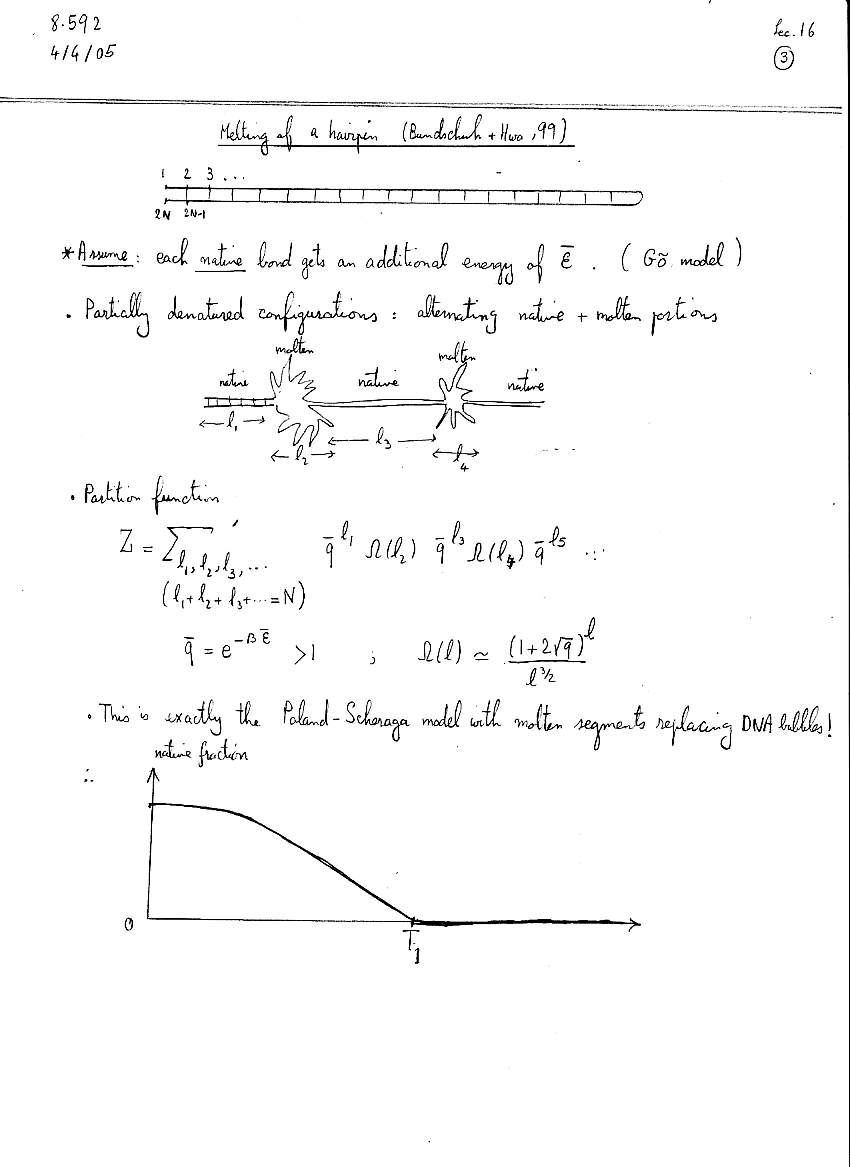 8.592
Lec. 16
4/4/05
3
Melting of a hairpin (Bundschuh + Hwa, 99)
1 2 3 ...
2N 2N-1
* Assume: each native bond gets an additional energy of ε̄ . ( Gō model )
. Partially denatured configurations : alternating native + molten portions
molten molten
native native native
l₁ l₂ l₃ l₄ ....
. Partition function
Z = Σ′ l₁, l₂, l₃, ... q̄^l₁ Ω(l₂) q̄^l₃ Ω(l₄) q̄^l₅ ...
(l₁ + l₂ + l₃ + ... = N)
q̄ = e^(-βε̄) >1 ; Ω(l) ≃ (1+2√q)^l / l^(3/2)
. This is exactly the Poland-Scheraga model with molten segments replacing DNA bubbles!
native fraction
∴
0
T₁